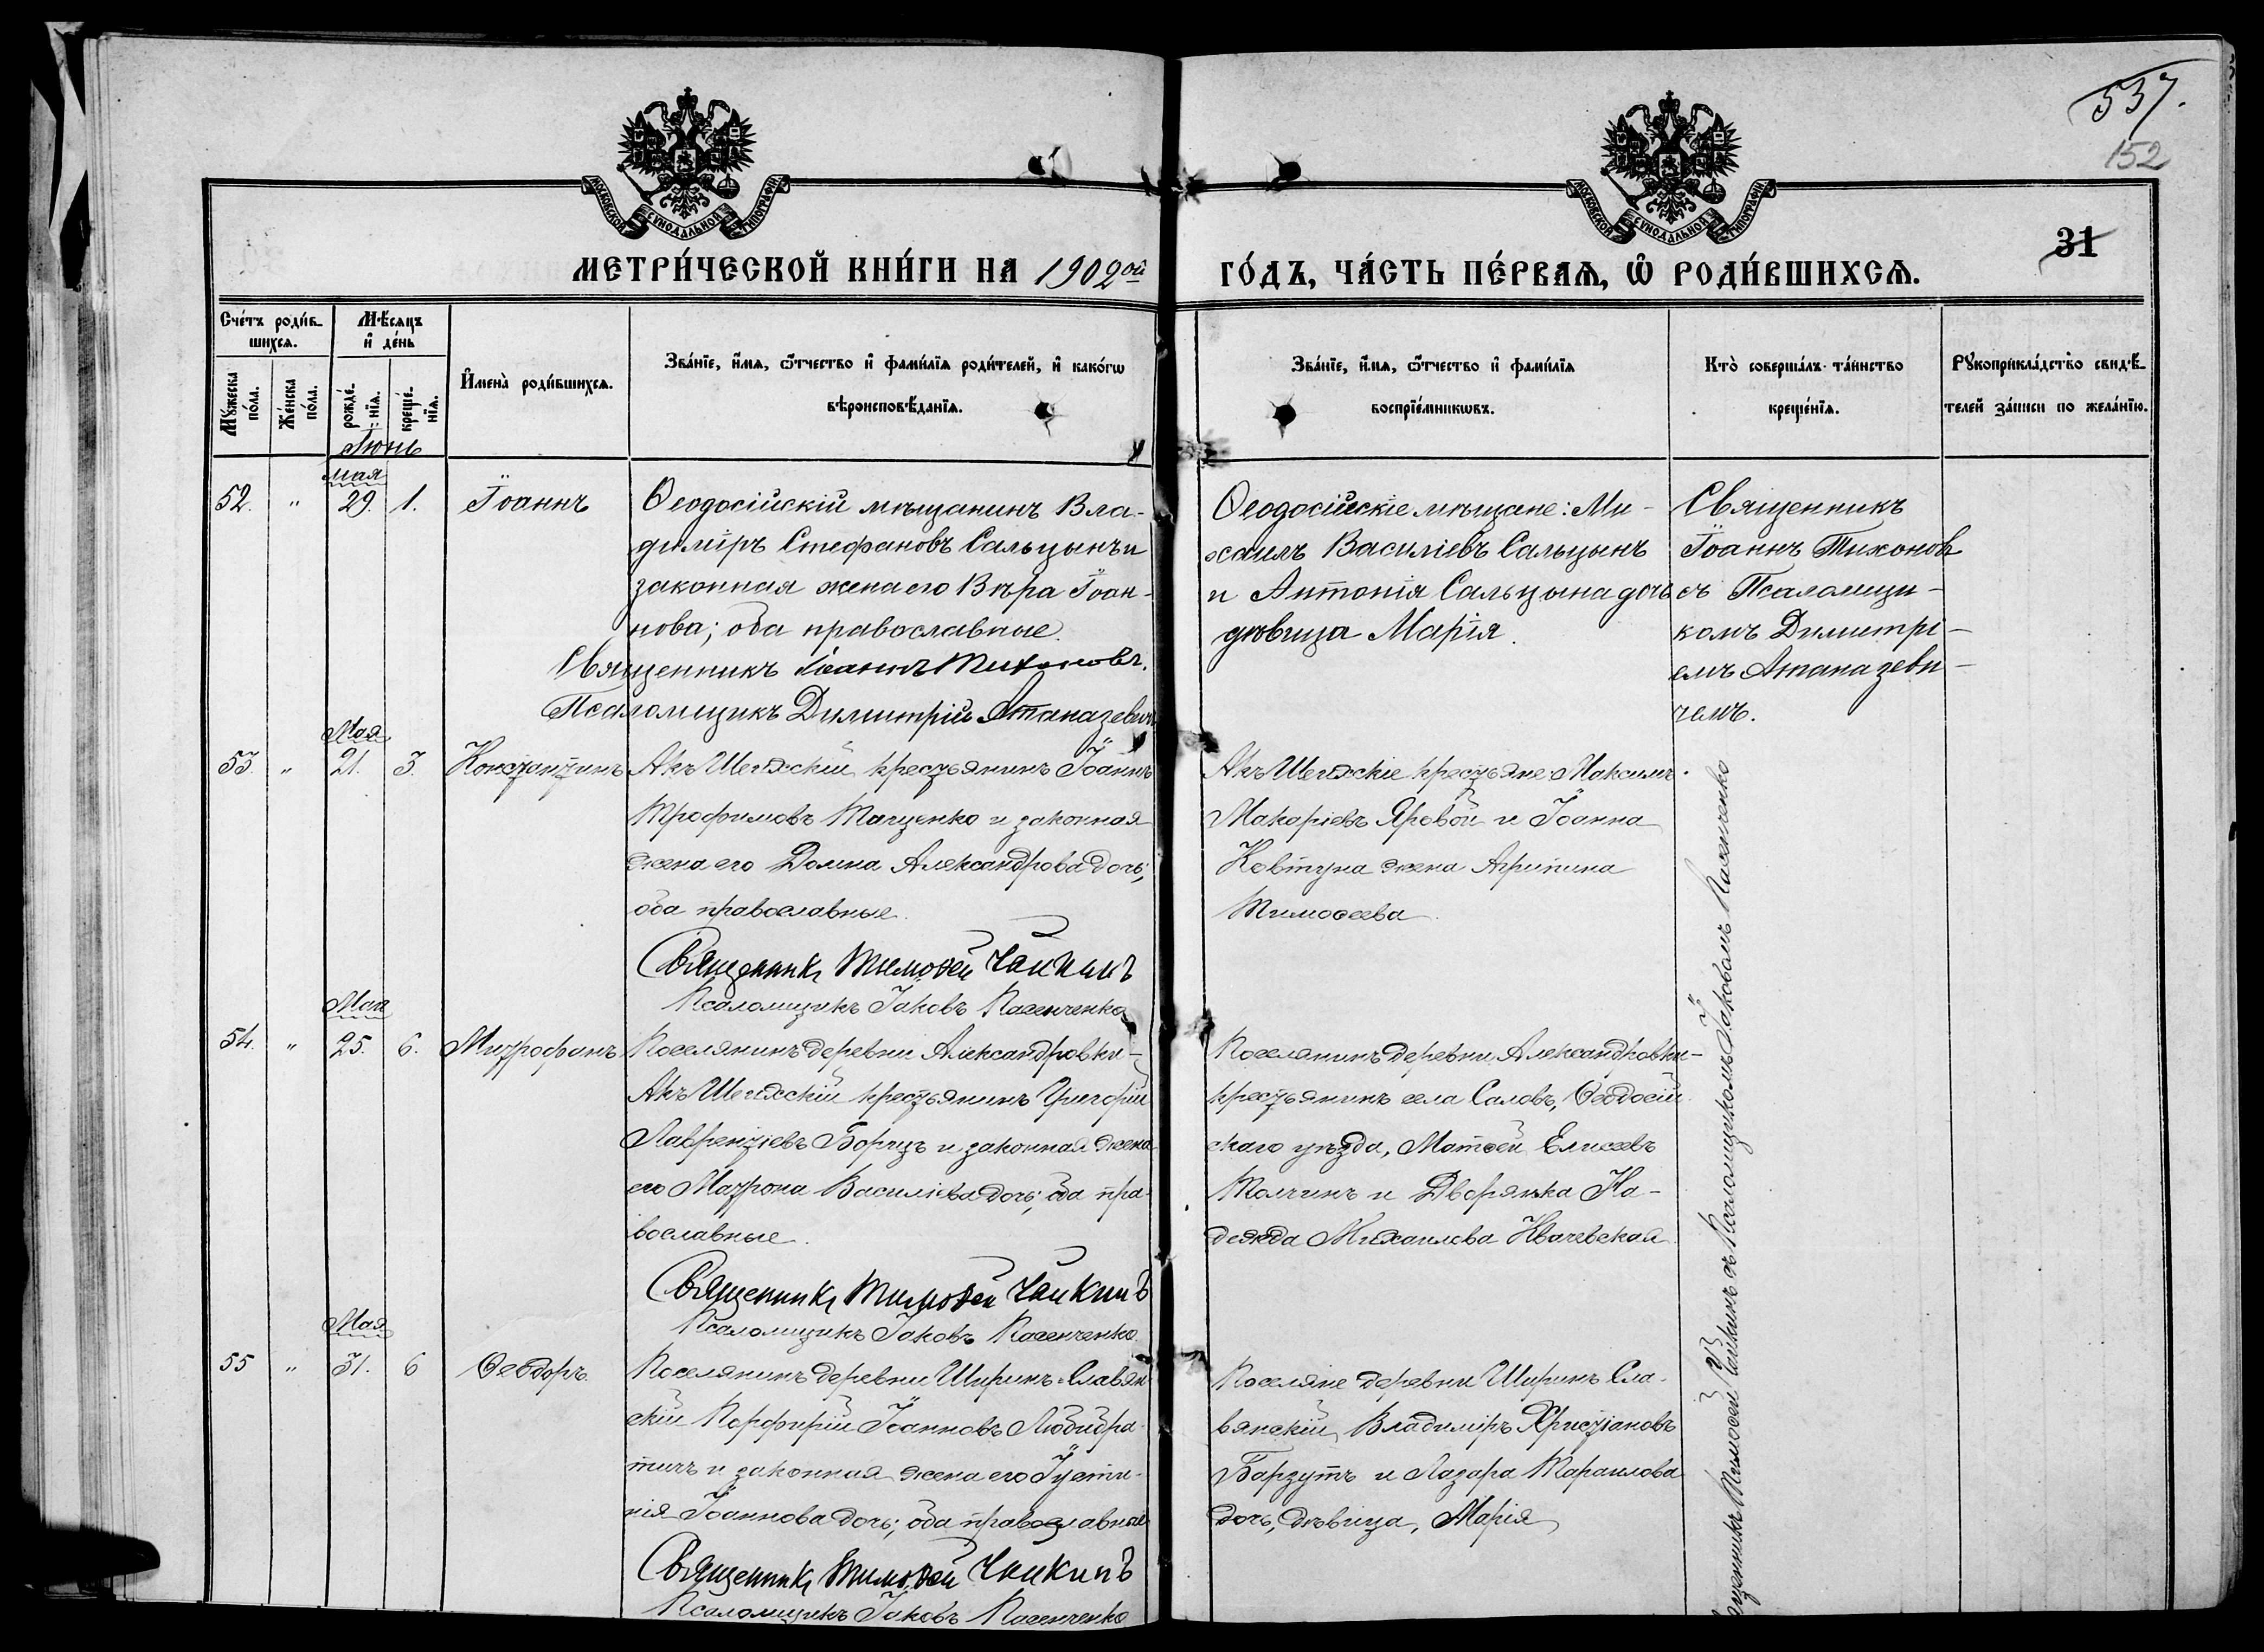 537.
152
МОСКОВСКОЙ СѴНОДАЛЬНОЙ ТИПОГРАФІИ
МОСКОВСКОЙ СѴНОДАЛЬНОЙ ТИПОГРАФІИ
31
МЕТРИ́ЧЕСКОЙ КНИ́ГИ НА 1902ой
ГО́ДЪ, ЧА́СТЬ ПЕ́РВАѦ, Ѡ҆ РОДИ́ВШИХСѦ.
Сче́тъ роди́в-
шихсѧ.
Мꙋ́жеска по́ла.
Же́нска по́ла.
Мѣ́сѧцъ
и҆ де́нь
рожде́-нїѧ.
креще́-нїѧ.
И҆мена̀ роди́вшихсѧ.
Зва́нїе, и҆́мѧ, ѻ҆́тчество и҆ фами́лїѧ роди́телей, и҆ како́гѡ
вѣроисповѣ́данїѧ.
Зва́нїе, и҆́мѧ, ѻ҆́тчество и҆ фами́лїѧ
воспрїе́мникѡвъ.
Кто̀ соверша́лъ та́инство
креще́нїѧ.
Рꙋкоприкла́дство свидѣ́-
телей за́писи по жела́нїю.
Іюнь
мая
52. " 29. 1. Іоаннъ
Ѳеодосійскій мѣщанинъ Вла-
диміръ Стефановъ Сальцынъ и
законная жена его Вѣра Іоан-
нова; оба православные.
Священникъ Іоаннъ Тихоновъ.
Псаломщикъ Димитрій Атаназевич
Ѳеодосійскіе мѣщане: Ми-
хаилъ Василіевъ Сальцынъ
и Антонія Сальцына дочь
дѣвица Марія.
Священникъ
Іоаннъ Тихонов
съ Псаломщи-
комъ Димитрі-
емъ Атаназеви-
чемъ.
Мая
53. " 21. 3. Константинъ
Акъ Шегхскій крестьянинъ Іоаннъ
Трофимовъ Тащенко и законная
жена его Домна Александрова дочь;
оба православные.
Священникъ Тимоѳей Чайкинъ
Псаломщикъ Іаковъ Пасенченко
Акъ Шегхскіе крестьяне: Максимъ
Макаріевъ Яровой и Іоанна
Ковтуна жена Агрипина
Тимоѳеева.
Мая
54. " 25. 6. Митрофанъ
Поселянинъ деревни Александровки-
Акъ Шегхскій крестьянинъ Григорій
Лаврентіевъ Борчъ и законная жена
его Матрона Василіева дочь; оба пра-
вославные.
Священникъ Тимоѳей Чайкинъ
Псаломщикъ Іаковъ Пасенченко.
Поселянинъ деревни Александровки-
крестьянинъ села Саловъ, Ѳеодосій
скаго уѣзда, Матѳей Елисеевъ
Толчинъ и Дворянка На-
дежда Михаилова Квачевская
Мая
55 " 31. 6 Ѳеодоръ.
Поселянинъ деревни Ширинъ-Славян
скій Порфирій Іоанновъ Любибра-
тичъ и законная жена его Іусти-
нія Іоаннова дочь; оба православные
Священникъ Тимоѳей Чайкинъ
Псаломщикъ Іаковъ Пасенченко
Поселяне деревни Ширинъ Сла-
вянскій, Владиміръ Христіановъ
Барзутъ и Лазара Тараилова
дочь, дѣвица, Марія
щенникъ Тимоѳей Чайкинъ съ Псаломщикомъ Іаковомъ Пасенченко